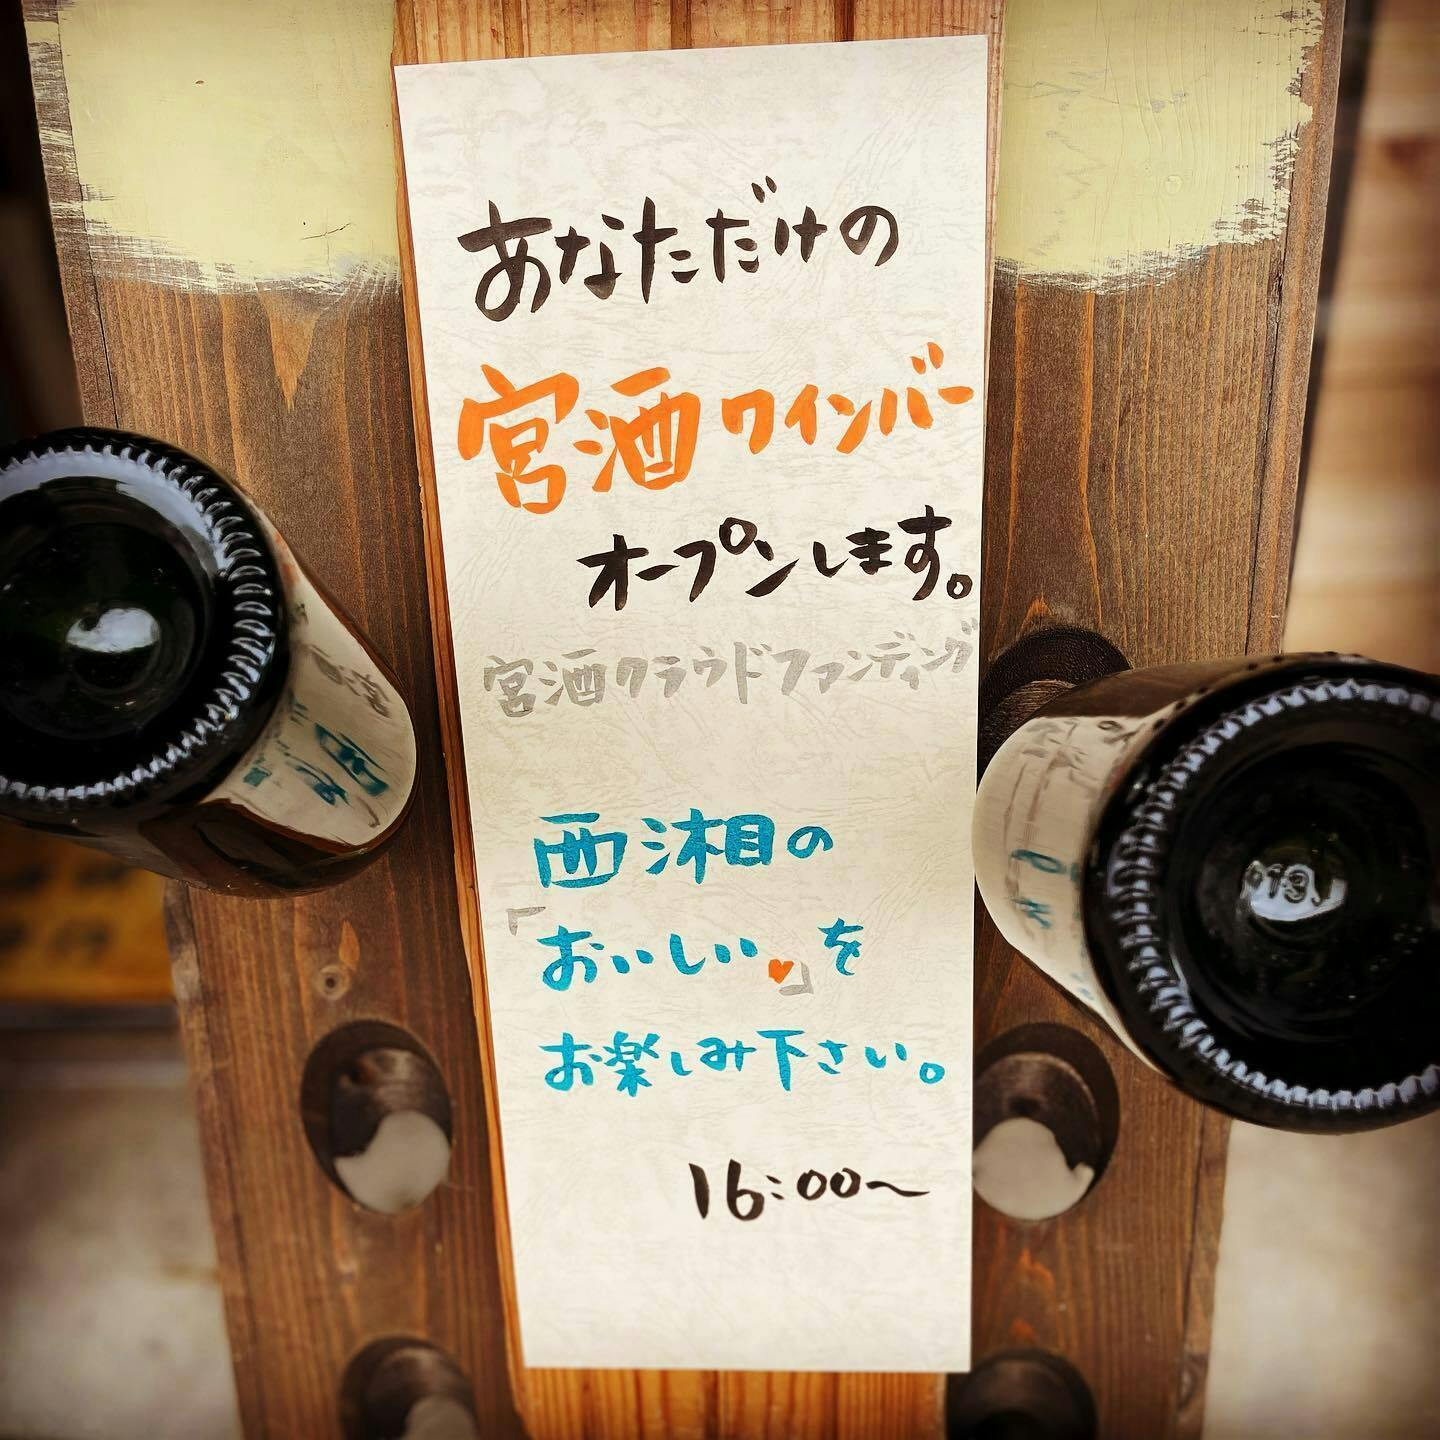 あなただけの
宮酒ワインバー
オープンします。
宮酒クラウドファンディング
西湘の
「おいしい♥」を
お楽しみ下さい。
16:00〜